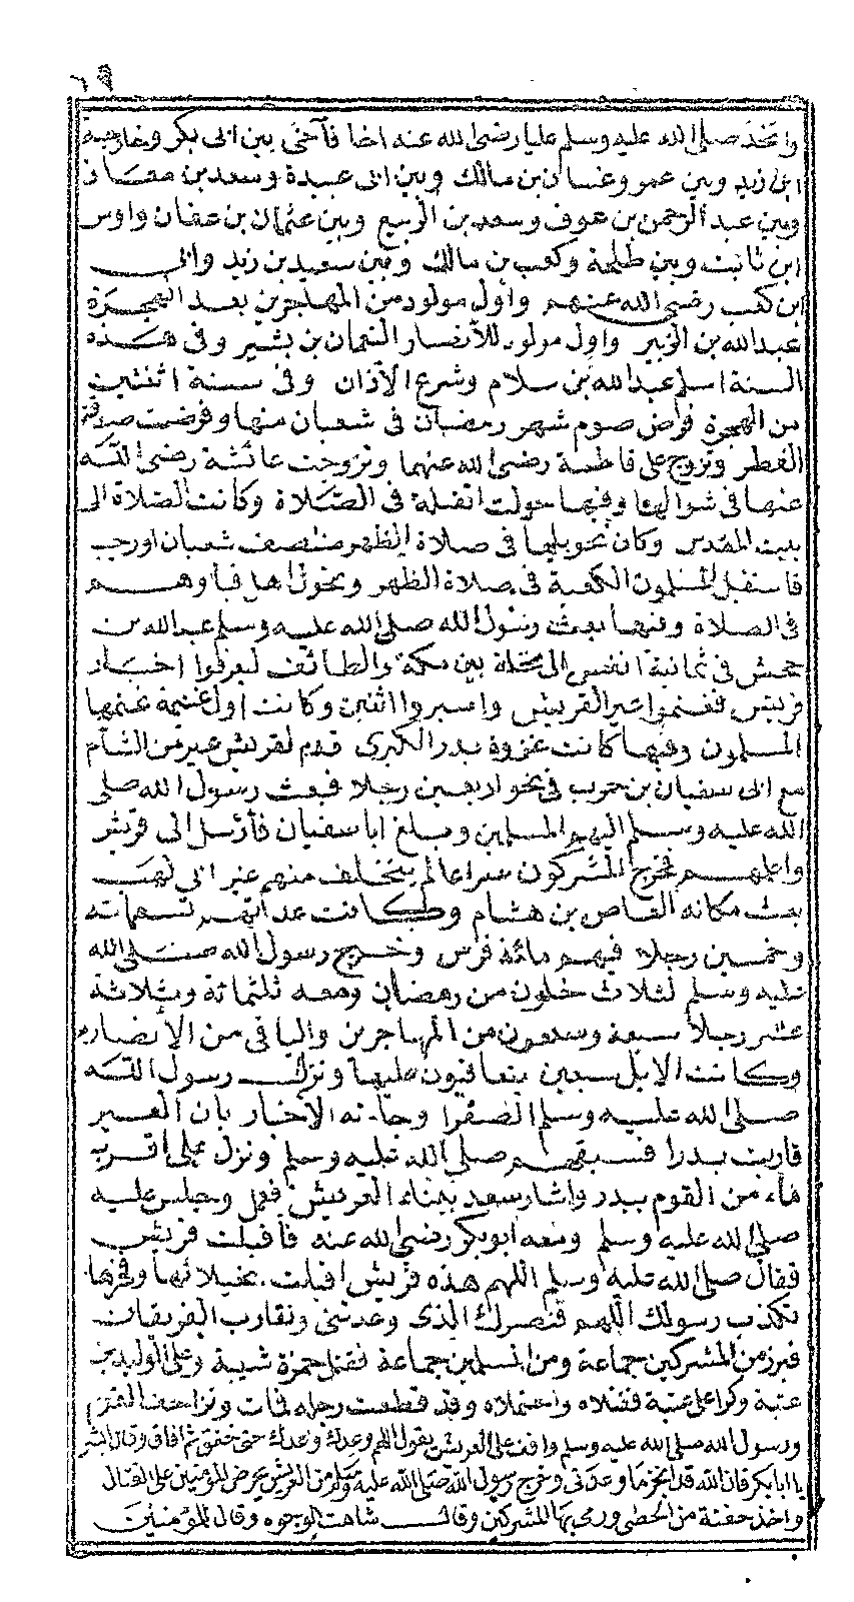 ٦٩
واتخذ صلى الله عليه وسلم عليا رضى الله عنه اخا فآخى بين ابى بكر وخارجة
ابن زيد وبين عمر وعتبان بن مالك وبين ابى عبيدة وسعد بن معاذ
وبين عبد الرحمن بن عوف وسعد بن الربيع وبين عثمان بن عفان واوس
ابن ثابت وبين طلحة وكعب بن مالك وبين سعيد بن زيد وابى
ابن كعب رضى الله عنهم واول مولود من المهاجرين بعد الهجرة
عبد الله بن الزبير واول مولود للأنصار النعمان بن بشير وفى هذه
السنة اسلم عبد الله بن سلام وشرع الاذان وفى سنة اثنتين
من الهجرة فرض صوم شهر رمضان فى شعبان منها وفرضت صدقة
الفطر وتزوج على فاطمة رضى الله عنهما وتزوجت عائشة رضى الله
عنها فى شوالها وفيها حولت القبلة فى الصلاة وكانت الصلاة الى
بيت المقدس وكان تحويلها فى صلاة الظهر منتصف شعبان اورجب
فاستقبل المسلمون الكعبة فى صلاة الظهر وتحول اهل قبا وهم
فى الصلاة وفيها بعث رسول الله صلى الله عليه وسلم عبد الله بن
جحش فى ثمانية انفس الى نخلة بين مكة والطائف ليعرفوا اخبار
قريش فغنموا عير القريش واسروا اثنين وكانت اول غنيمة غنمها
المسلمون وفيها كانت غزوة بدر الكبرى قدم لقريش عير من الشام
مع ابى سفيان بن حرب فى نحو اربعين رجلا فبعث رسول الله صلى
الله عليه وسلم اليهم المسلمين وبلغ ابا سفيان فأرسل الى قريش
واعلمهم فخرج المشركون سراعا لم يتخلف منهم غير ابى لهب
بعث مكانه العاص بن هشام وكانت عدتهم تسعمائة
وخمسين رجلا فيهم مائة فرس وخرج رسول الله صلى الله
عليه وسلم لثلاث خلون من رمضان ومعه ثلثمائة وثلاثة
عشر رجلا سبعة وسبعون من المهاجرين والباقى من الأنصار
وكانت الابل سبعين يتعاقبون عليها ونزل رسول الله
صلى الله عليه وسلم الصفرا وجاءته الاخبار بان العير
قاربت بدرا فسبقهم صلى الله عليه وسلم ونزل على اقرب
ماء من القوم ببدر واشار سعد ببناء العريش ففعل وجلس عليه
صلى الله عليه وسلم ومعه ابو بكر رضى الله عنه فأقبلت قريش
فقال صلى الله عليه وسلم اللهم هذه قريش اقبلت بخيلائها وفخرها
تكذب رسولك اللهم فنصرك الذى وعدتنى وتقارب الفريقان
فبرز من المشركين جماعة ومن المسلمين جماعة فقتل حمزة شيبة وعلى الوليد بن
عتبة وكرا على عتبة فقتلاه واحتملاه وقد قطعت رجله فمات وتزاحف القوم
ورسول الله صلى الله عليه وسلم واقف على العريش يقول اللهم وعدك وعدك حتى خفق ثم افاق وقال ابشر
يا ابا بكر فان الله قد انجز ما وعدنى وخرج رسول الله صلى الله عليه وسلم من العريش يحرض المومنين على القتال
واخذ حفنة من الحصى ورمى بها المشركين وقال شاهت الوجوه وقال للمؤمنين